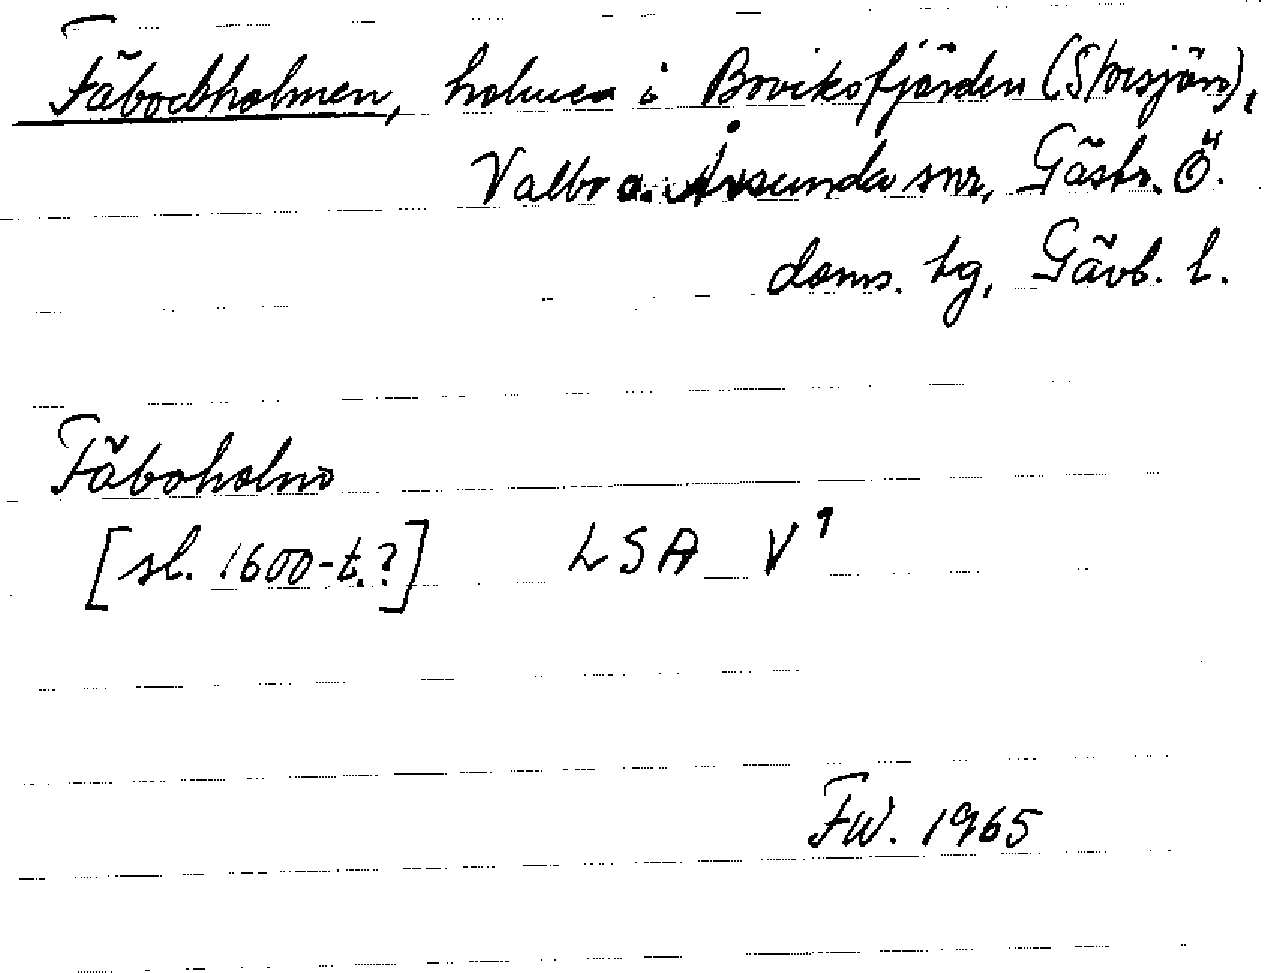 Fäbodholmen, holmen i Boviksfjärden (Storsjön),
Valbo o. Årsunda snr, Gästr. Ö.
doms. tg, Gävb. l.
Fäboholmo
[sl. 1600-t.?] LSA V 1
FW. 1965